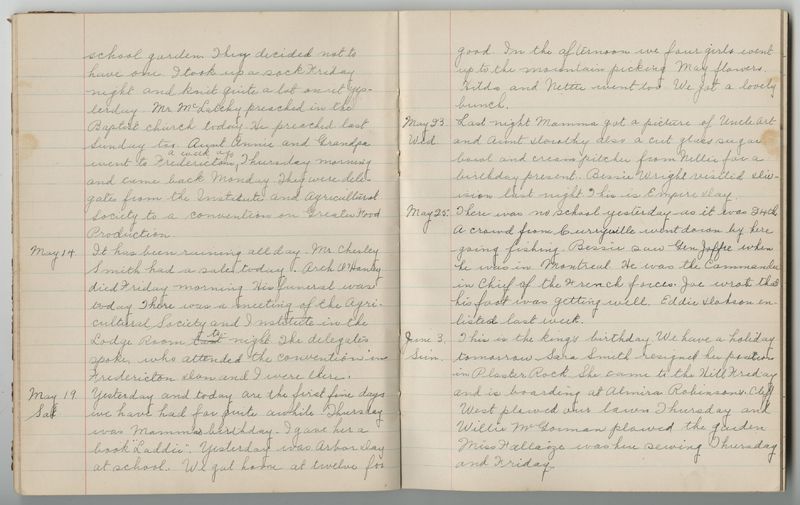 school garden. They decided not to
have one. I took up a sock Friday
night and knit quite a lot on it yes-
terday. Mr. McLatchy preached in the
Baptist church today. He preached last
Sunday too. Aunt Annie and Grandpa
a week ago
went to Fredericton, Thursday morning
and came back Monday. They were dele-
gates from the Institute and Agricultural
Society to a convention on Greater Food
Production.
May 14. It has been raining all day. Mr. Chesley
Smith had a sale today. Arch
died Friday morning. His funeral was
today. There was a meeting of the Agri-
cultural Society and Institute in the
Lodge Room to night. The delegates
spoke, who attended the convention in
Fredericton. Don and I were there.
May 19. Yesterday and today are the first fine days
Sat. we have had for quite awhile. Thursday
was Mamma's birthday. I gave her a
book "Laddie". Yesterday was Arbor day
at school. We got home at twelve for
good. In the afternoon we four girls went
up to the mountain picking May flowers.
Hilda and Nettie went too. We got a lovely
bunch.
May 23. Last night Mamma got a picture of Uncle Art
Wed. and Aunt Dorothy also a cut glass sugar
bowl and cream pitcher from Nellie for a
birthday present. Bessie Wright visited div-
ision last night. This is Empire day.
May 25. There was no school yesterday as it was 24th.
A crowd from Curryville went down by here
going fishing. Bessie saw Gen. Joffre when
he was in Montreal. He was the Commander
in Chief of the French forces. Joe wrote that
his foot was getting well. Eddie Dobson en-
listed last week.
June 3. This is the king's birthday. We have a holiday
Sun. tomorrow. Sara Smith resigned her position
in Plaster Rock. She came to the Hill Friday
and is boarding at Almira Robinson's. Cliff
West plowed our lawn Thursday and
Willie McGorman plowed the garden
Miss was here sewing Thursday
and Friday.